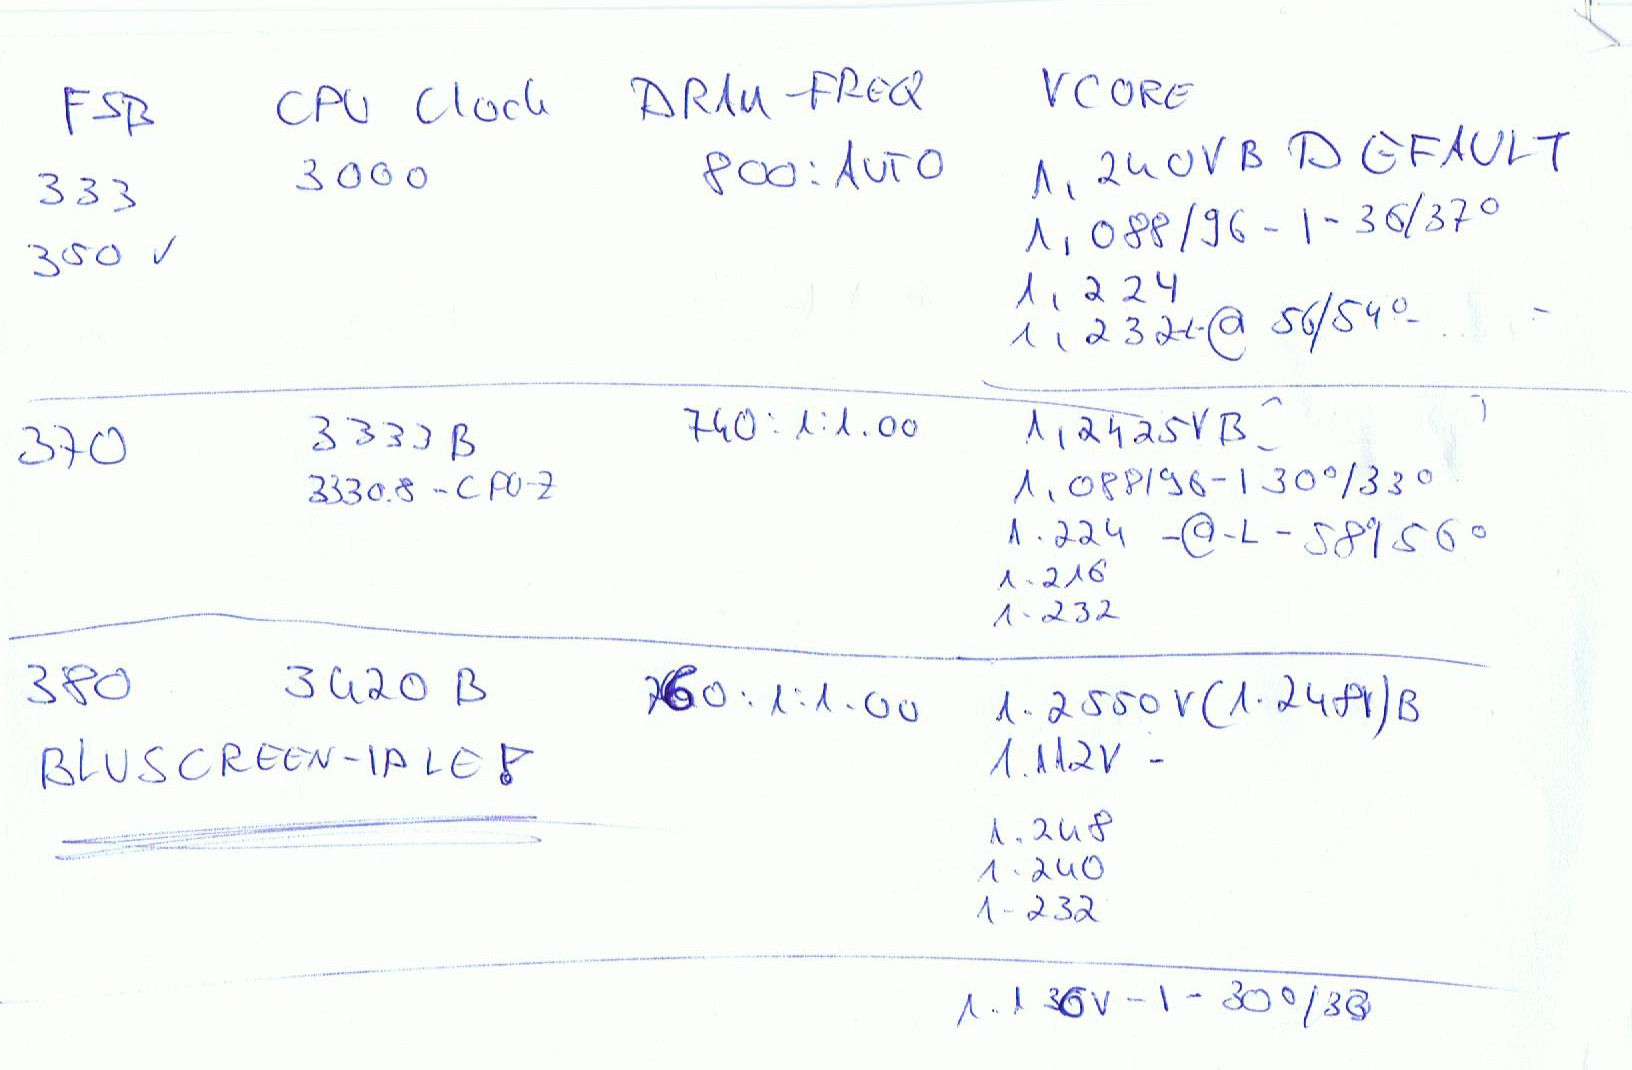 FSB CPU Clock DRAM-FREQ VCORE
333 3000 800:AUTO 1,240V B DEFAULT
350 ✓ 1,088/96-I-36/37°
1,224
1,232-L-@ 56/54°-
370 3333 B 740:1:1.00 1,2425V B
3330.8-CPU-Z 1,088/96-I 30°/33°
1.224 -@-L-58/56°
1.216
1.232
380 3420 B 760:1:1.00 1.2550V(1.248V)B
BLUSCREEN-IDLE! 1.112V -
1.248
1.240
1-232
1.136V-I-30°/33